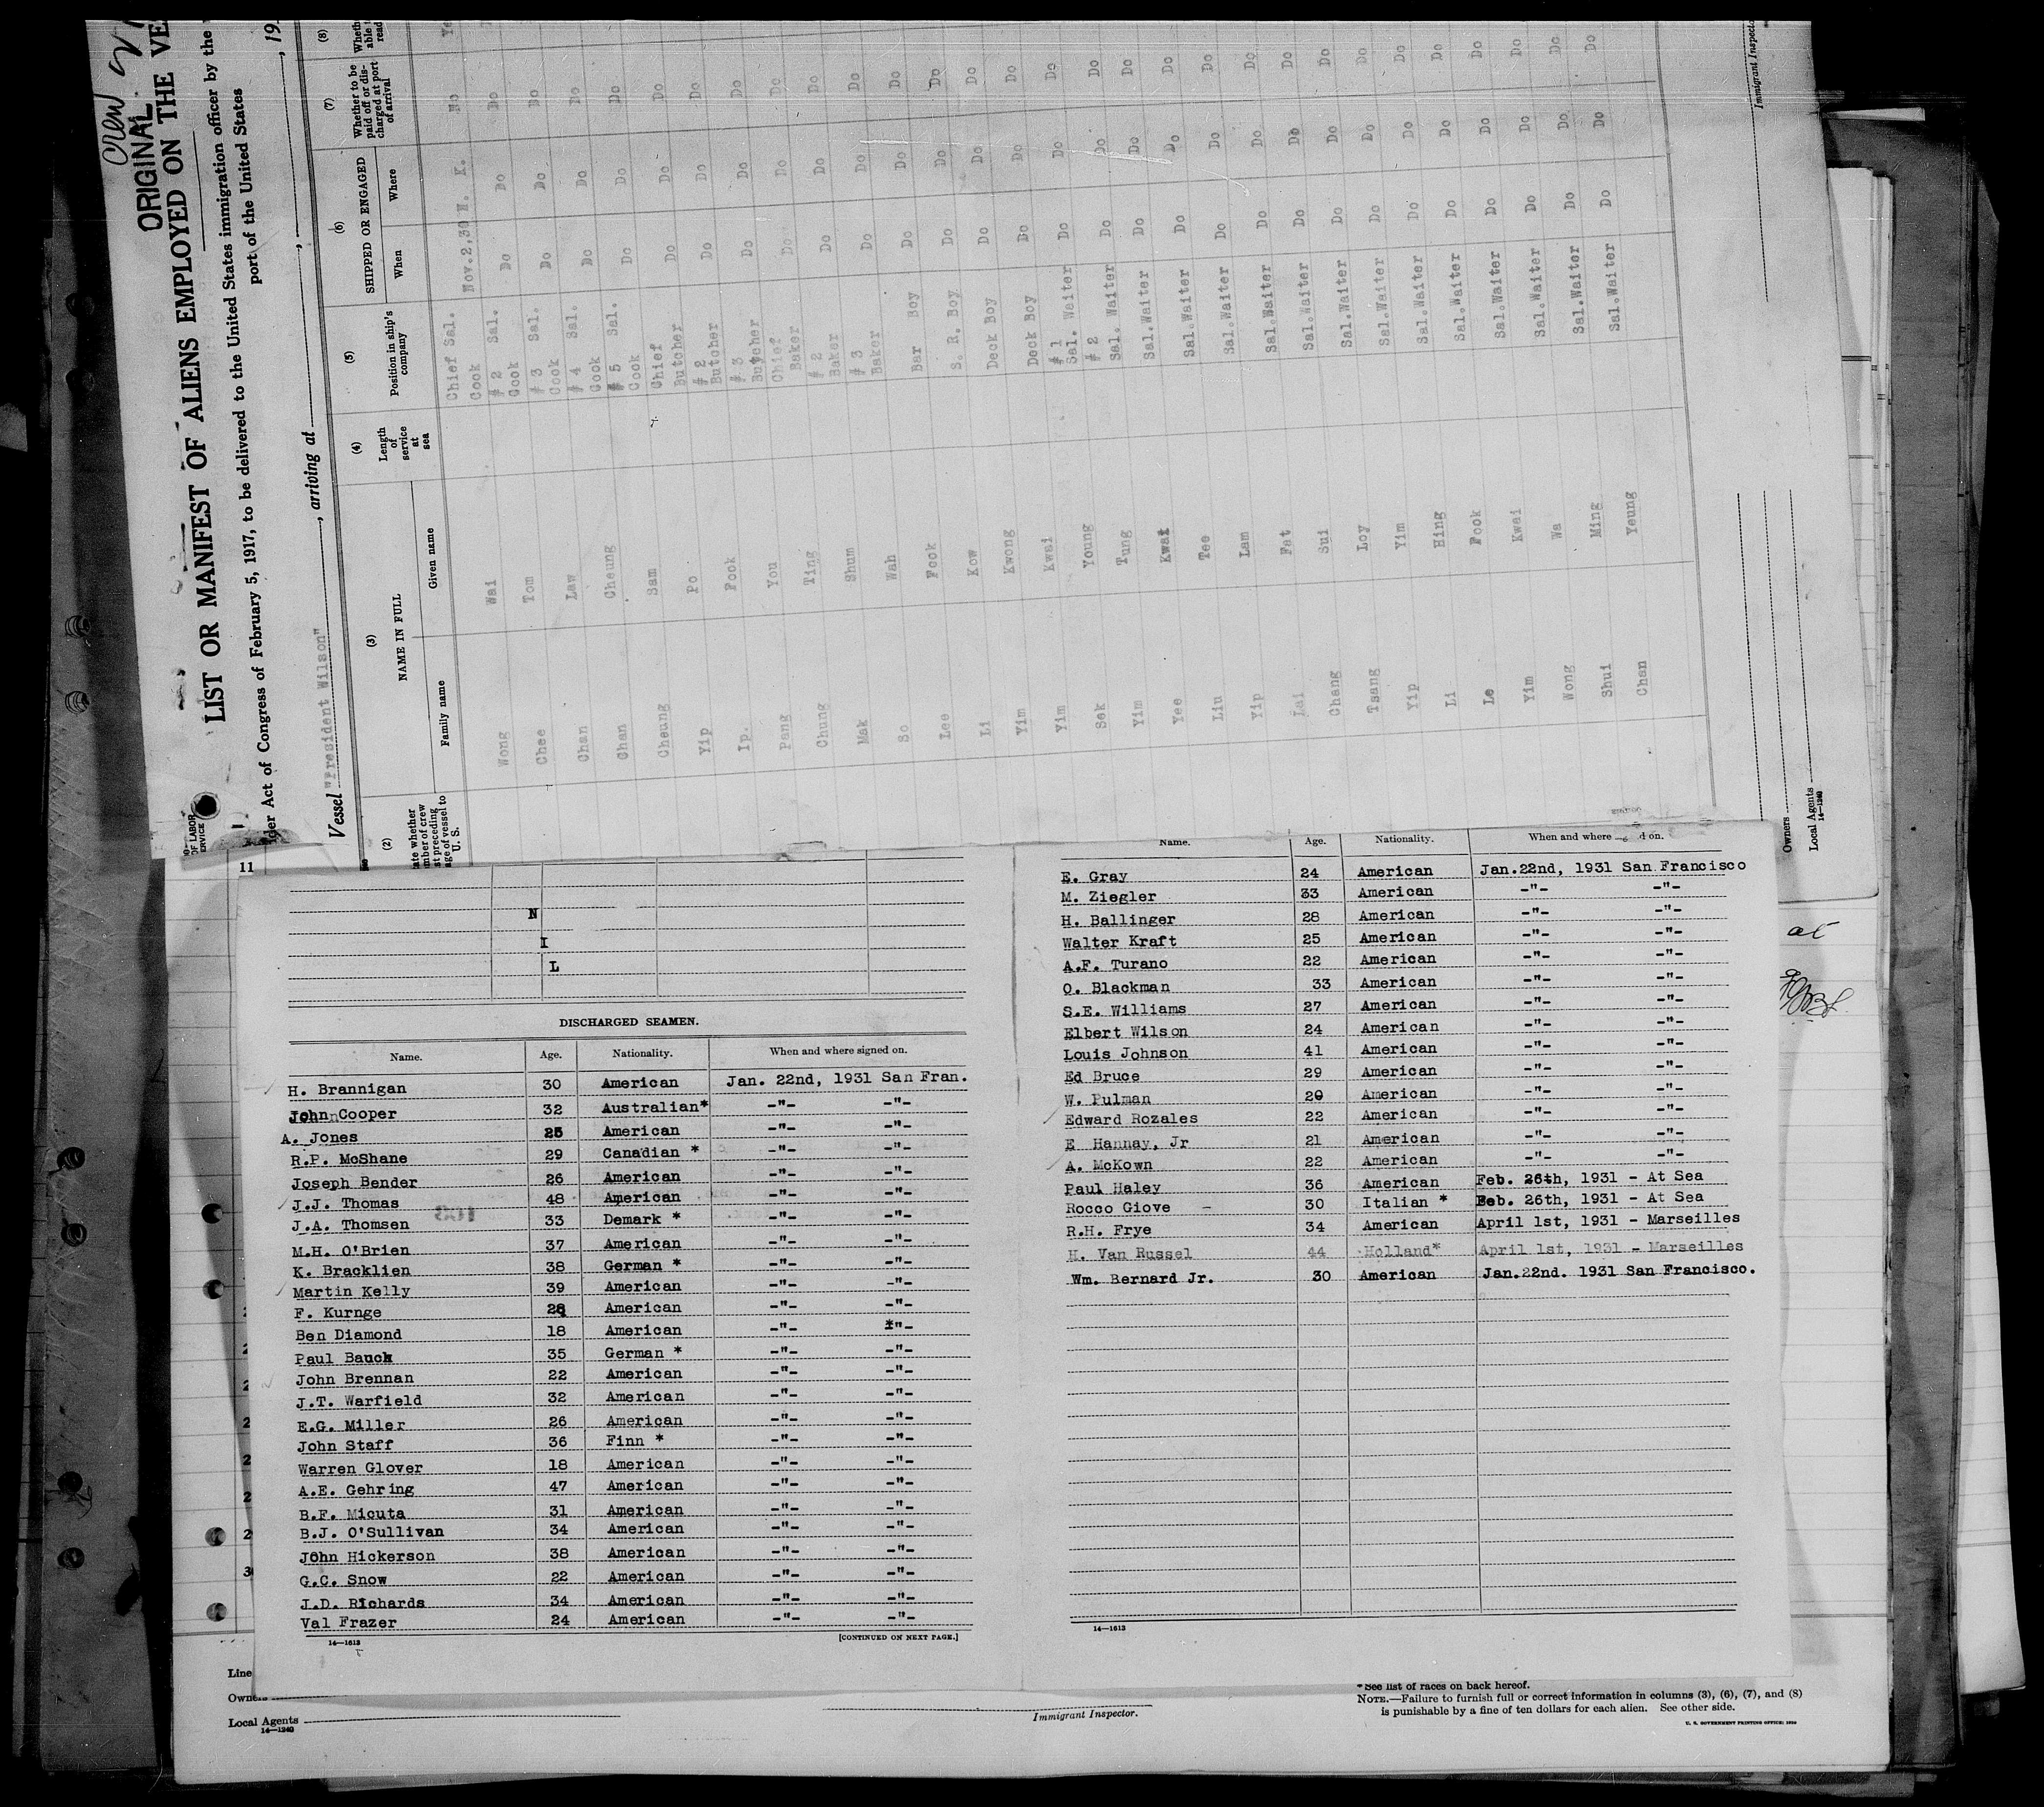 Crew
ORIGINAL
LIST OR MANIFEST OF ALIENS EMPLOYED ON THE VE
der Act of Congress of February 5, 1917, to be delivered to the United States immigration officer by the
port of the United States
Vessel "President Wilson", arriving at , , 19
OF LABOR
ERVICE
(2) (3) (4) (5) (6) (7) (8)
ate whether
mber of crew
st preceding
age of vessel to
U. S.
NAME IN FULL
Family name Given name
Length
of
service
at
sea
Position in ship's
company
SHIPPED OR ENGAGED
When Where
Whether to be
paid off or dis-
charged at port
of arrival
Wheth
able
read
Wong Wai Chief Sal. Cook Nov.2,30 H. K. No Ye
Chee Tom # 2 Sal. Cook Do Do Do
Chan Law # 3 Sal. Cook Do Do Do
Chan Cheung # 4 Sal. Cook Do Do Do
Cheung Sam # 5 Sal. Cook Do Do Do
Yip Po Chief Butcher Do Do Do
Ip. Fook # 2 Butcher Do Do Do
Pang You # 3 Butcher Do Do Do
Chung Ting Chief Baker Do Do Do
Mak Shum # 2 Baker Do Do Do
So Wah # 3 Baker Do Do Do
Lee Fook Bar Boy Do Do Do
Li Kow S. R. Boy Do Do Do
Yim Kwong Deck Boy Do Do Do
Yim Kwai Deck Boy Do Do Do
Sek Young # 1 Sal. Waiter Do Do Do
Yim Tung # 2 Sal. Waiter Do Do Do
Yee Kwai Sal.Waiter Do Do Do
Liu Tee Sal.Waiter Do Do Do
Yip Lam Sal.Waiter Do Do Do
Lai Fat Sal.Waiter Do Do Do
Chang Sui Sal.Waiter Do Do Do
Tsang Loy Sal.Waiter Do Do Do
Yip Yim Sal.Waiter Do Do Do
Li Hing Sal.Waiter Do Do Do
Le Fook Sal.Waiter Do Do Do
Yim Kwai Sal.Waiter Do Do Do
Wong Wa Sal.Waiter Do Do Do
Shui Ming Sal.Waiter Do Do Do
Chan Yeung Sal.Waiter Do Do Do
Immigrant Inspector
Owners
Local Agents
14—1240
11
N
I
L
DISCHARGED SEAMEN.
Name. Age. Nationality. When and where signed on.
H. Brannigan 30 American Jan. 22nd, 1931 San Fran.
John Cooper 32 Australian* -"- -"-
A. Jones 25 American -"- -"-
R.P. McShane 29 Canadian * -"- -"-
Joseph Bender 26 American -"- -"-
J.J. Thomas 48 American -"- -"-
J.A. Thomsen 33 Demark * -"- -"-
M.H. O'Brien 37 American -"- -"-
K. Bracklien 38 German * -"- -"-
Martin Kelly 39 American -"- -"-
F. Kurnge American -"- -"-
Ben Diamond 18 American -"- *"-
Paul Bauck 35 German * -"- -"-
John Brennan 22 American -"- -"-
J.T. Warfield 32 American -"- -"-
E.G. Miller 26 American -"- -"-
John Staff 36 Finn * -"- -"-
Warren Glover 18 American -"- -"-
A.E. Gehring 47 American -"- -"-
B.F. Micuta 31 American -"- -"-
B.J. O'Sullivan 34 American -"- -"-
John Hickerson 38 American -"- -"-
G.C. Snow 22 American -"- -"-
J.D. Richards 34 American -"- -"-
Val Frazer 24 American -"- -"-
14—1613
[CONTINUED ON NEXT PAGE.]
Name. Age. Nationality. When and where d on.
E. Gray 24 American Jan.22nd, 1931 San Francisco
M. Ziegler 33 American -"- -"-
H. Ballinger 28 American -"- -"-
Walter Kraft 25 American -"- -"-
A.F. Turano 22 American -"- -"-
O. Blackman 33 American -"- -"-
S.E. Williams 27 American -"- -"-
Elbert Wilson 24 American -"- -"-
Louis Johnson 41 American -"- -"-
Ed Bruce 29 American -"- -"-
W. Pulman 20 American -"- -"-
Edward Rozales 22 American -"- -"-
E Hannay, Jr 21 American -"- -"-
A. McKown 22 American -"- -"-
Paul Haley 36 American Feb. 26th, 1931 - At Sea
Rocco Giove - 30 Italian * Feb. 26th, 1931 - At Sea
R.H. Frye 34 American April 1st, 1931 - Marseilles
H. Van Russel 44 Holland* April 1st, 1931 - Marseilles
Wm. Bernard Jr. 30 American Jan.22nd. 1931 San Francisco.
14—1613
Line
Owners
Local Agents
14—1240
Immigrant Inspector.
* See list of races on back hereof.
NOTE.—Failure to furnish full or correct information in columns (3), (6), (7), and (8)
is punishable by a fine of ten dollars for each alien. See other side.
U. S. GOVERNMENT PRINTING OFFICE: 1929